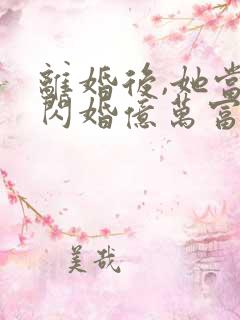 離婚後,她當
閃婚億萬富
美哉